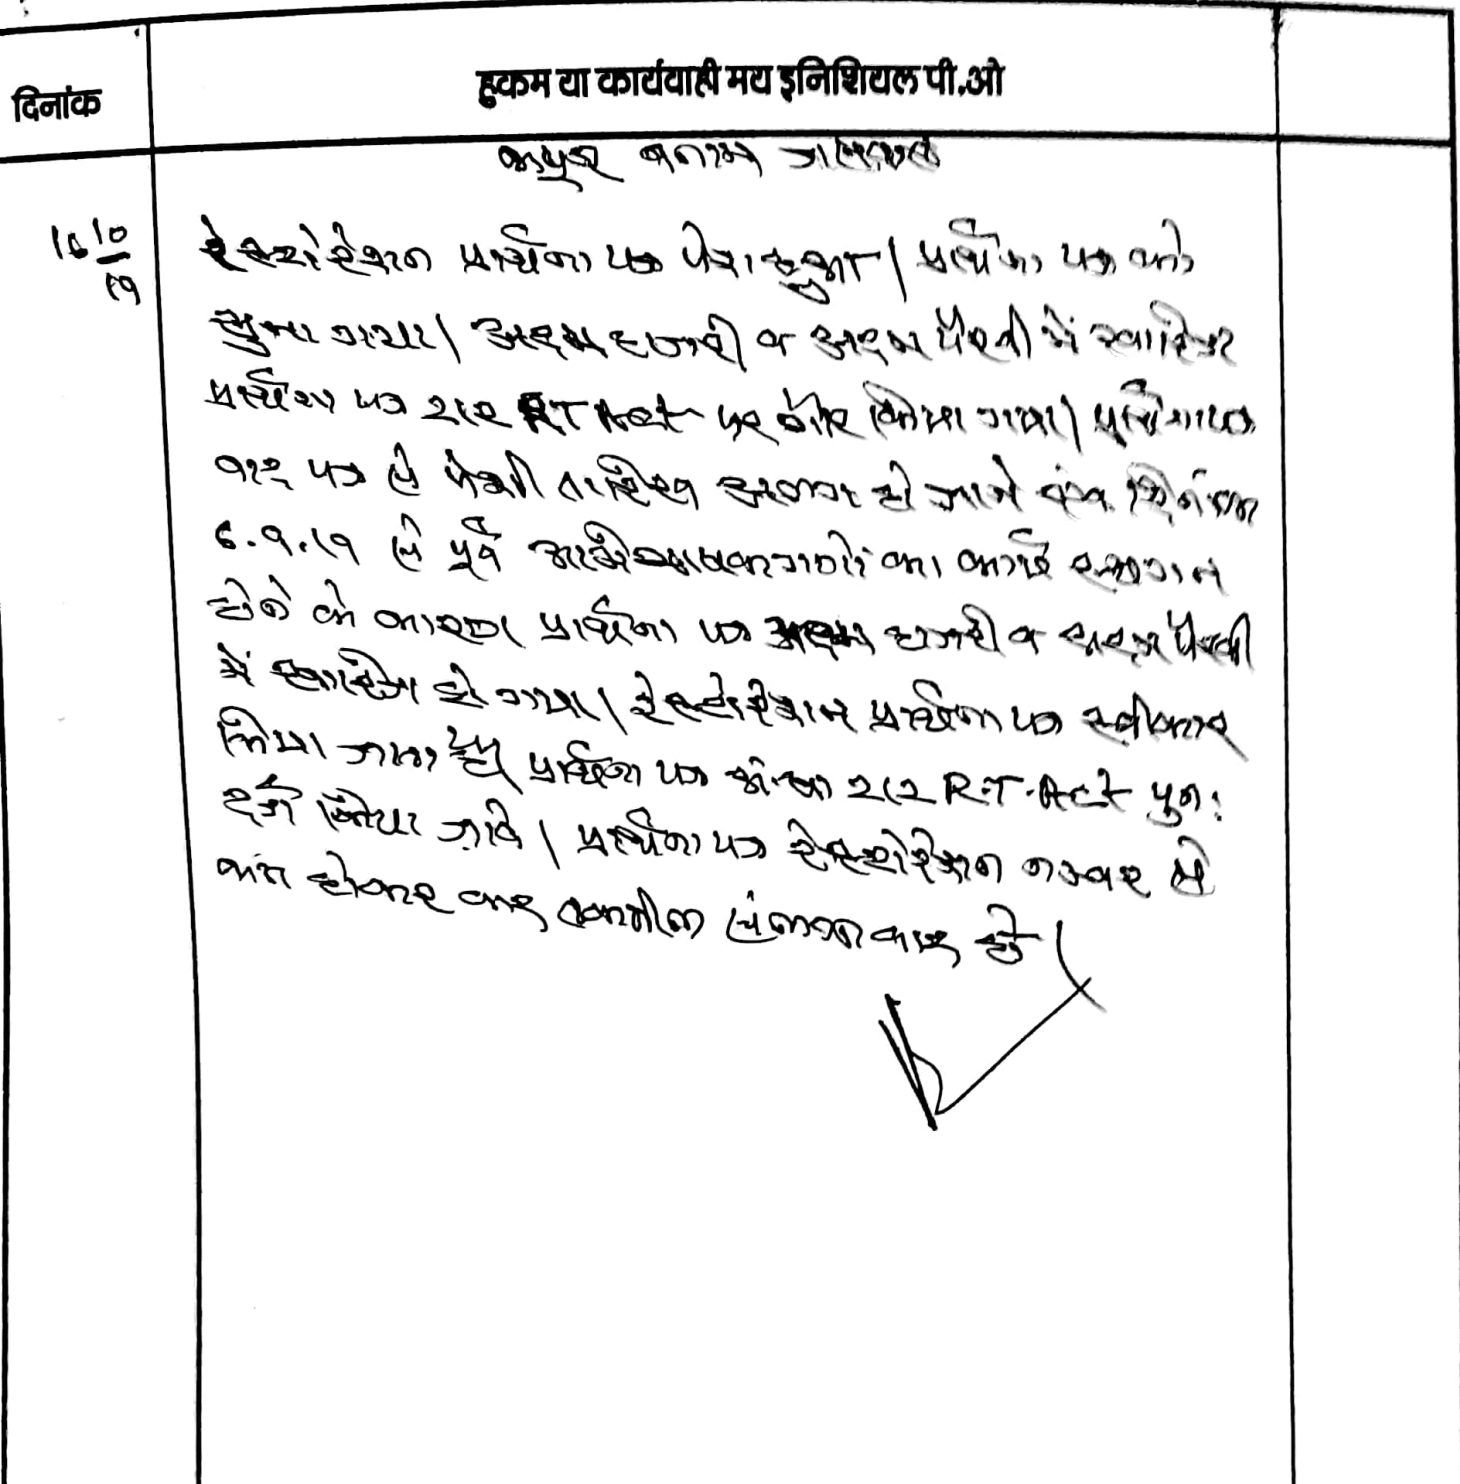 दिनांक
हुकम या कार्यवाही मय इनिशियल पी.ओ
कपूर बनाम
16/10/19
रेस्टोरेशन प्रार्थना पत्र पेश हुआ। प्रार्थना पत्र को
सुना गया। अदम हाजरी व अदम पैरवी में खारिज
प्रार्थना पत्र 212 RT Act पर गौर किया गया।
पत्र से पेशी तारीख अलग हो जाने दिनांक
6.9.19 से पूर्व अभिभाषकगणों का कार्य स्थगन
होने के कारण प्रार्थना पत्र अदम हाजरी व अदम पैरवी
में खारिज हो गया। रेस्टोरेशन प्रार्थना पत्र स्वीकार
किया जाता है प्रार्थना पत्र 212 R.T. Act पुनः
दर्ज किया जावे। प्रार्थना पत्र रेस्टोरेशन नम्बर से
कम होकर बाद तकमील संलग्न वाद हो।